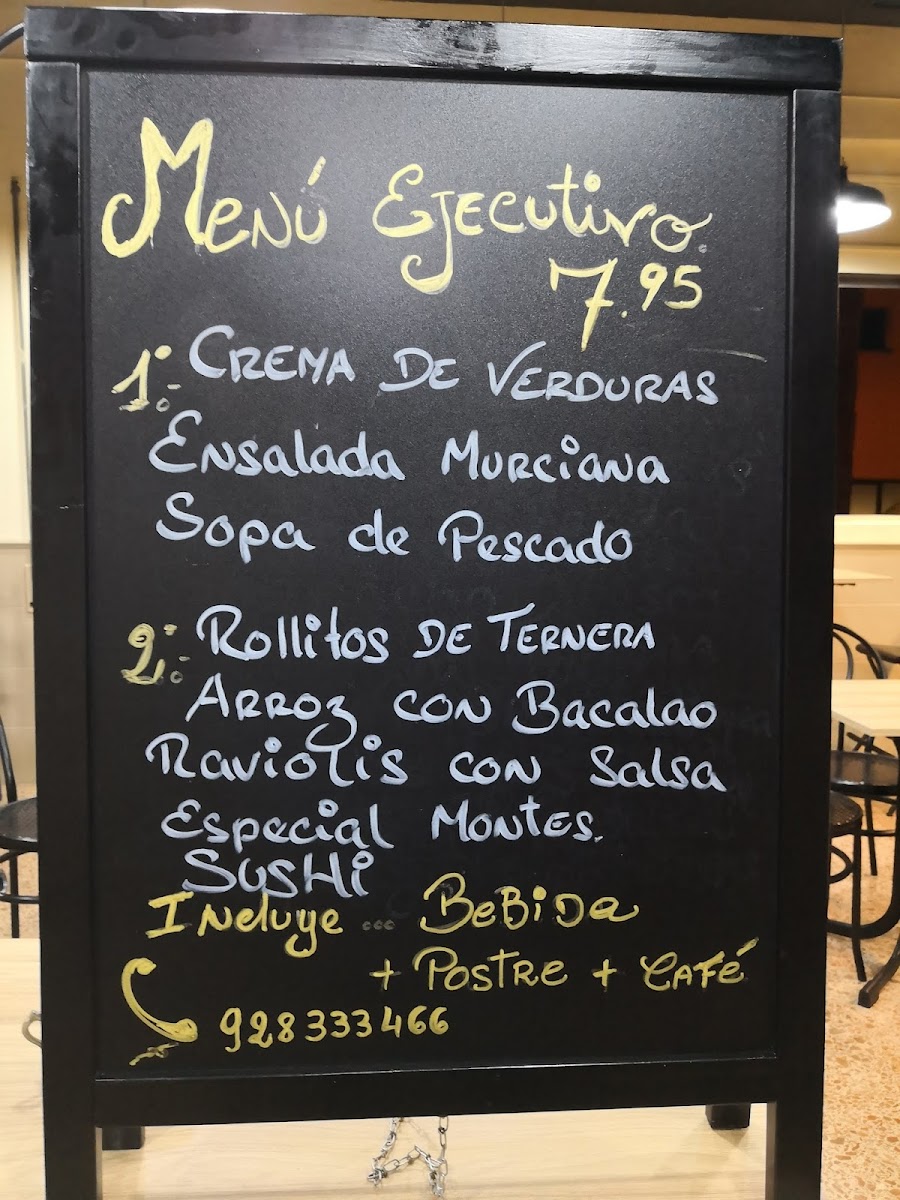 Menú Ejecutivo
7.95
1º:- Crema de Verduras
Ensalada Murciana
Sopa de Pescado
2º:- Rollitos de Ternera
Arroz con Bacalao
Raviolis con Salsa
Especial Montes.
Sushi
Incluye ... Bebida
+ Postre + Café
928333466